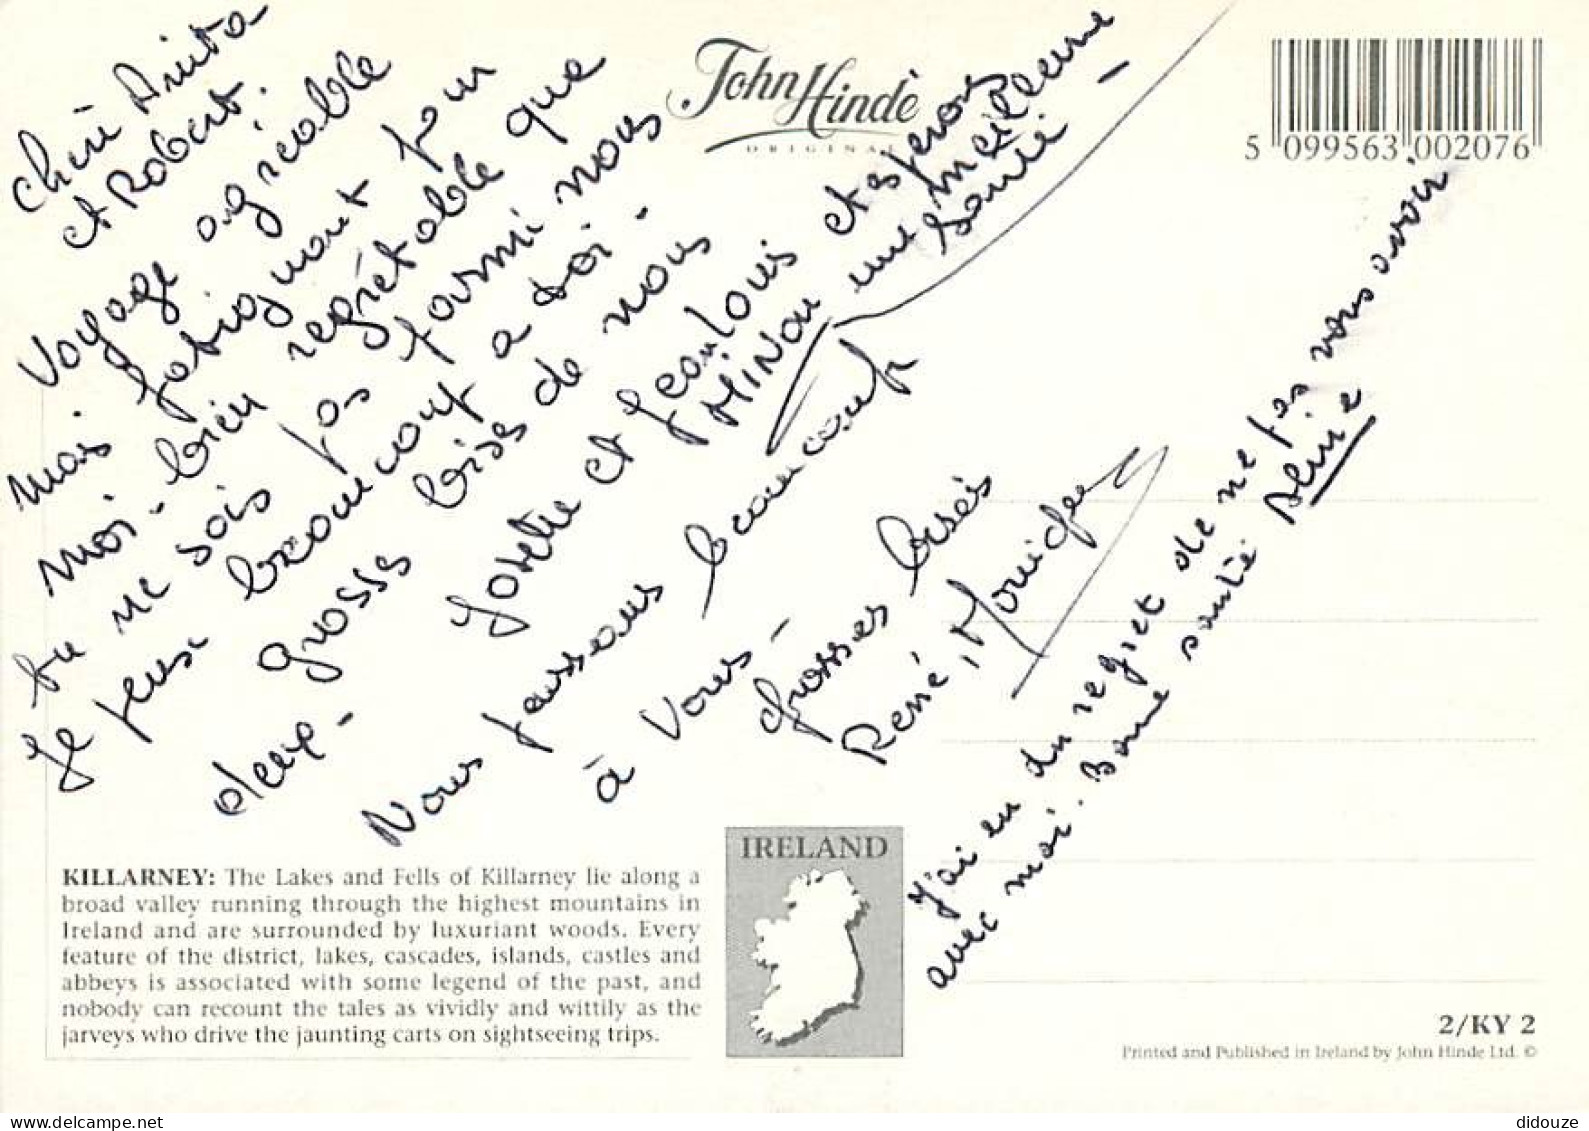 chère Anita
et Robert.
Voyage agréable
mais fatiguant pour
moi - bien regrétable que
tu ne sois pas parmi nous
Je pense beaucoup a toi -
grosses bises de nous
deux -
Josette et Jean Louis et espérons
MINou une meilleure
santé -
Nous pensons beaucoup
à vous -
Grosses bises
René, Monique
J'ai eu du regret de ne pas vous avoir
avec moi. Bonne santé
John Hinde
ORIGINAL
5 099563 002076
KILLARNEY: The Lakes and Fells of Killarney lie along a
broad valley running through the highest mountains in
Ireland and are surrounded by luxuriant woods. Every
feature of the district, lakes, cascades, islands, castles and
abbeys is associated with some legend of the past, and
nobody can recount the tales as vividly and wittily as the
jarveys who drive the jaunting carts on sightseeing trips.
IRELAND
2/KY 2
Printed and Published in Ireland by John Hinde Ltd. ©
www.delcampe.net
didouze